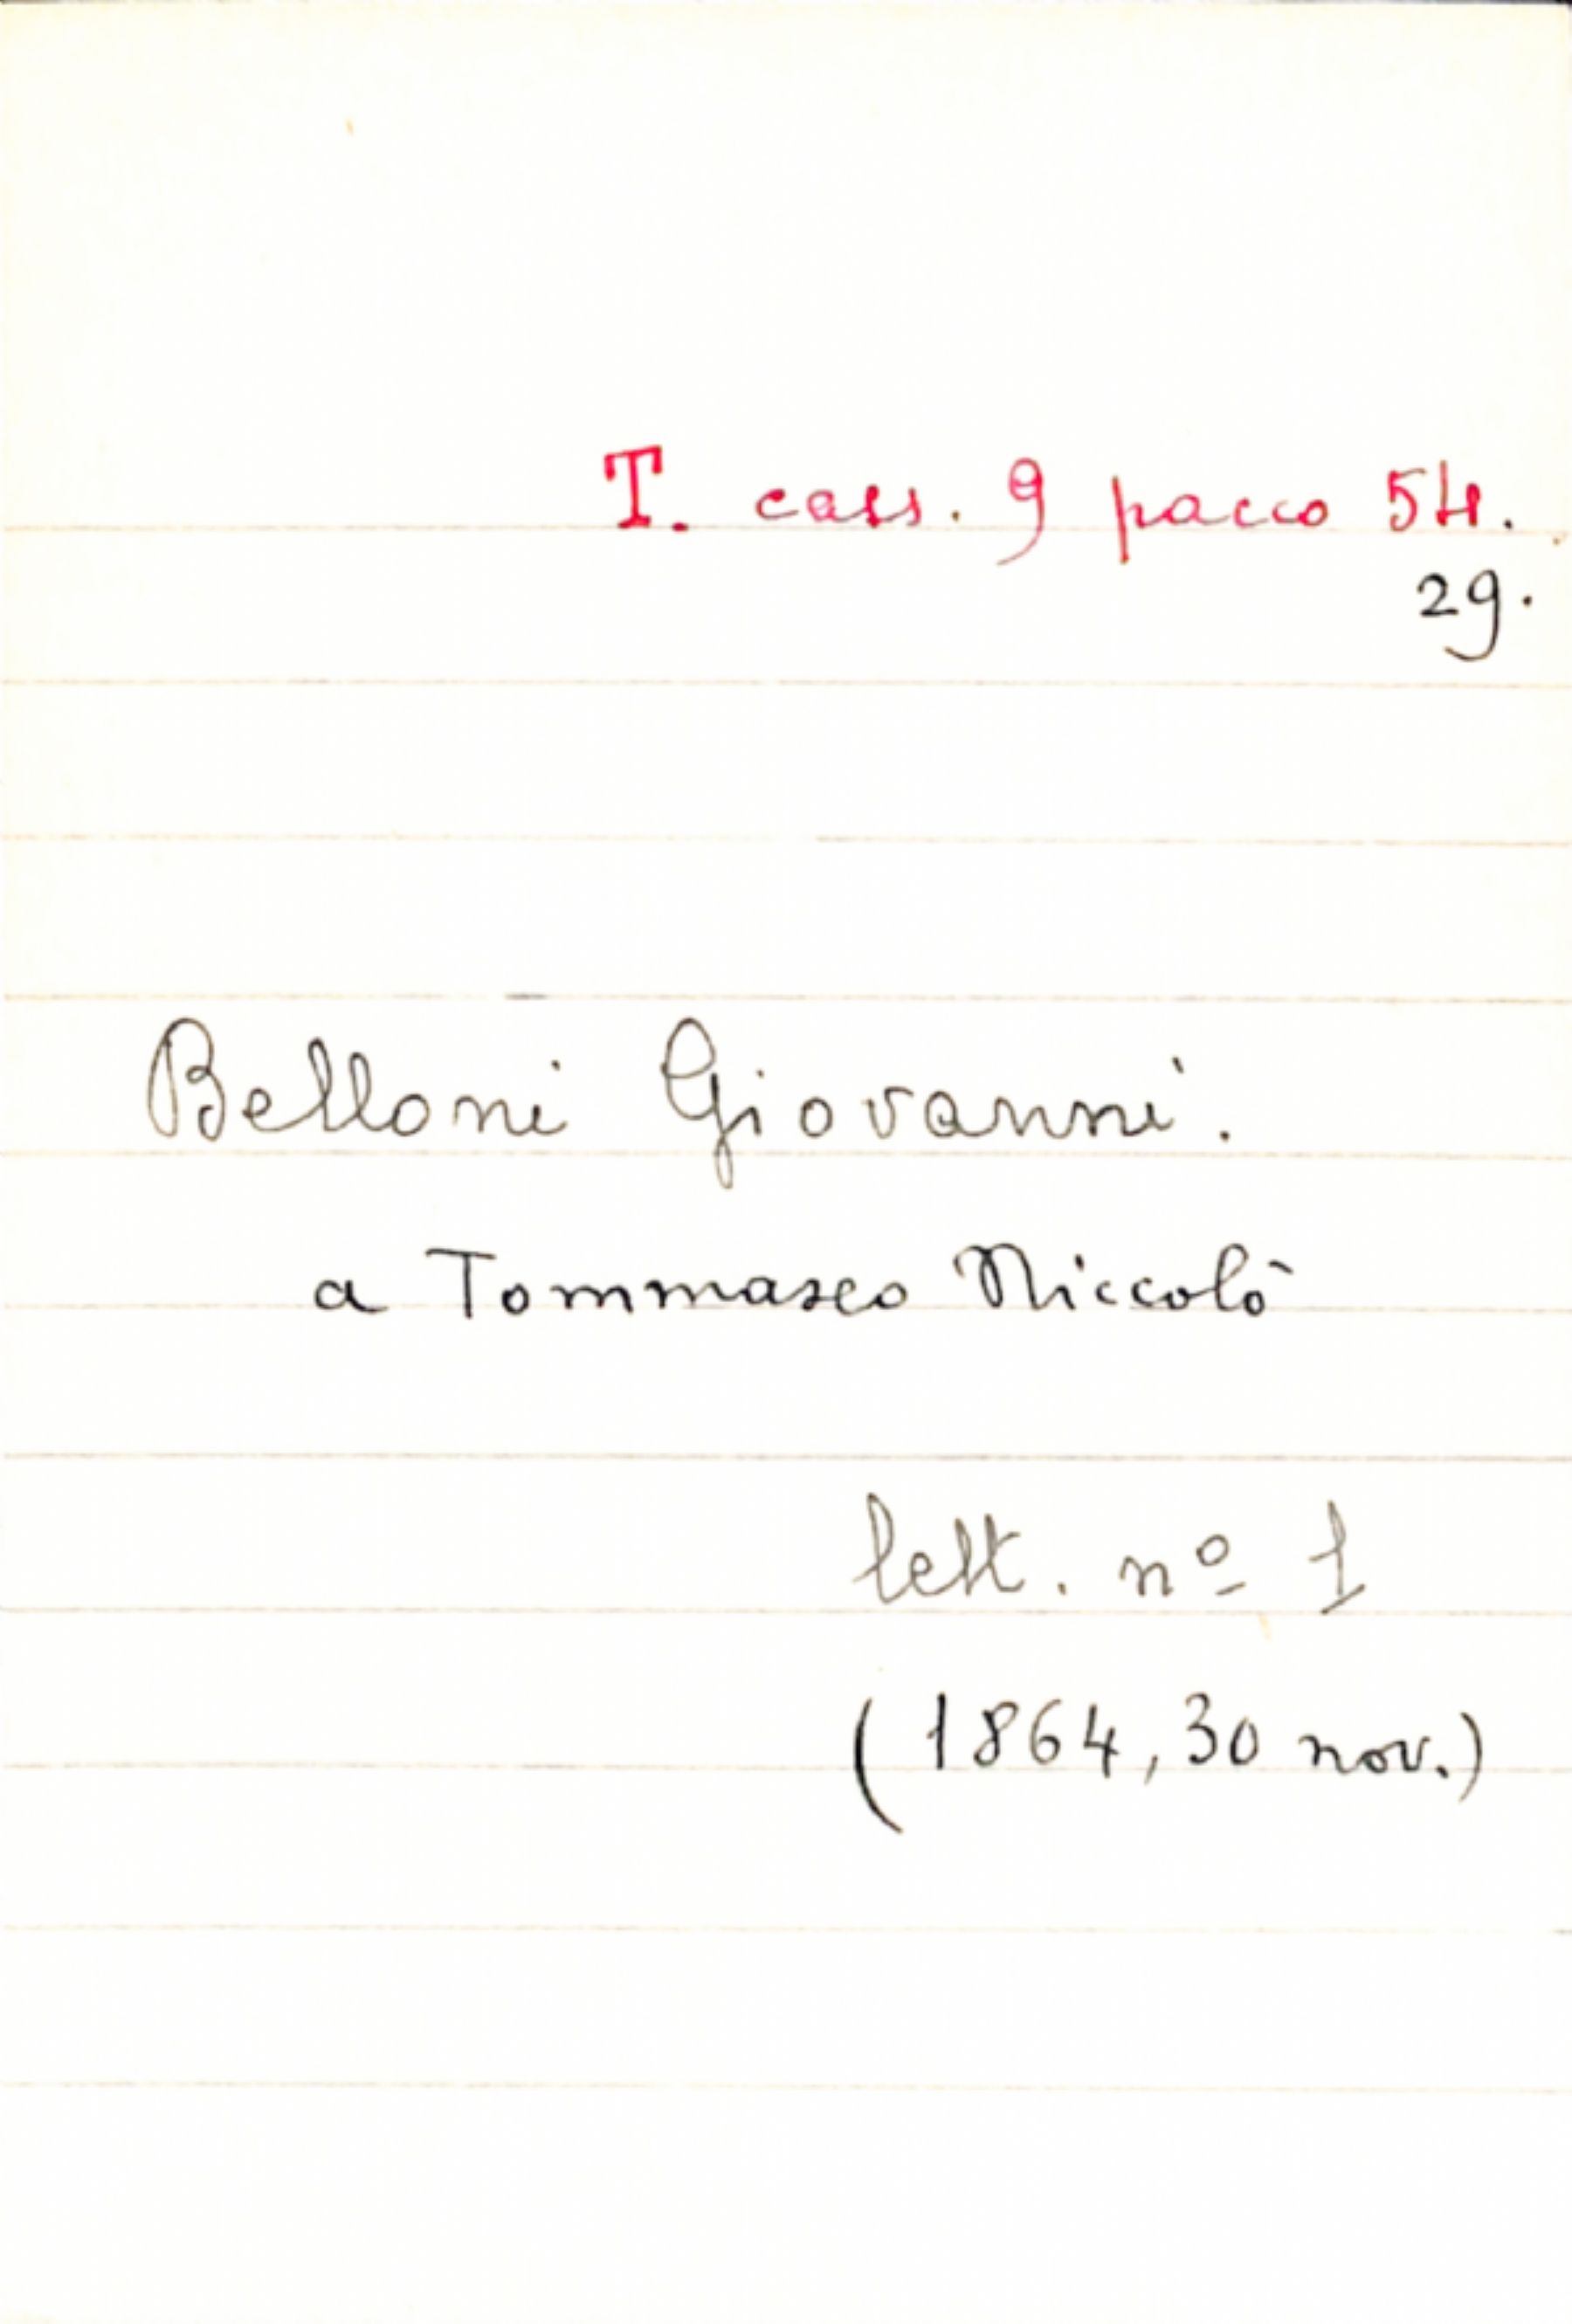 T. cass. 9 pacco 54.
29.
Belloni Giovanni.
a Tommaseo Niccolò
lett. nº 1
(1864, 30 nov.)